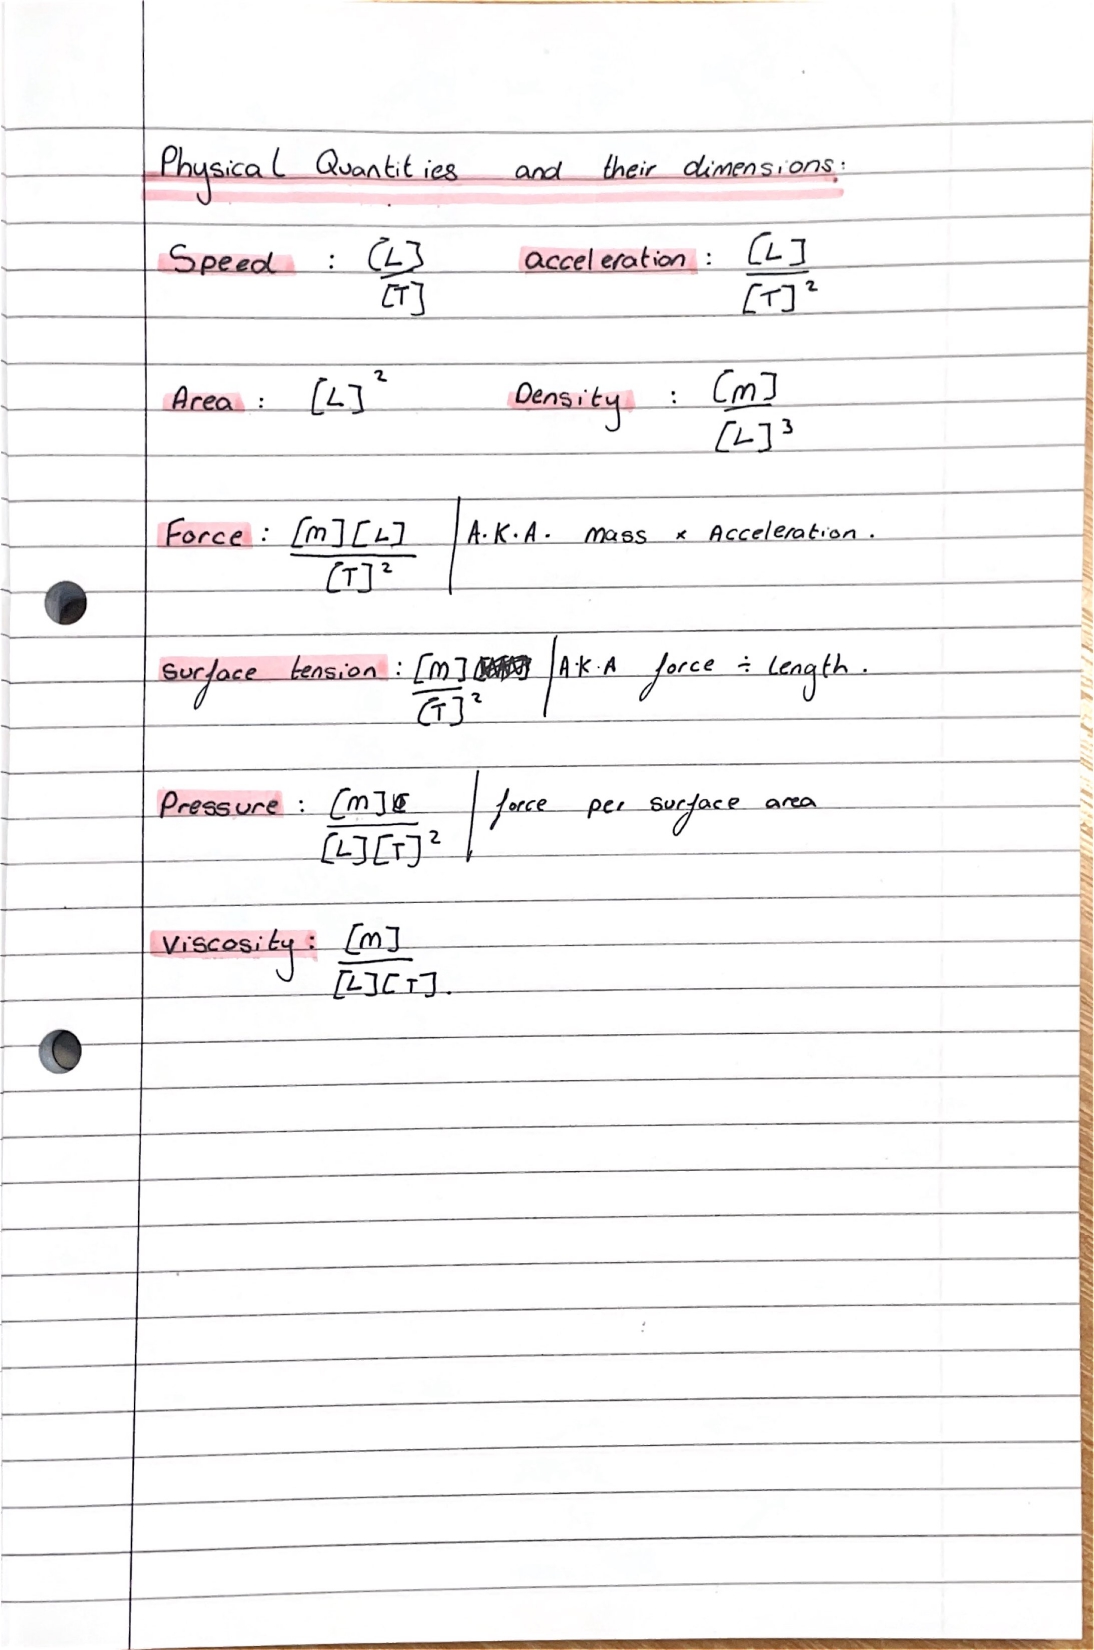 Physical Quantities and their dimensions:
Speed : [L]/[T] acceleration : [L]/[T]²
Area : [L]² Density : [m]/[L]³
Force : [m][L]/[T]² | A.K.A. mass × Acceleration.
surface tension : [m]/[T]² | A.K.A force ÷ Length.
Pressure : [m]/[L][T]² | force per surface area
Viscosity: [m]/[L][T].